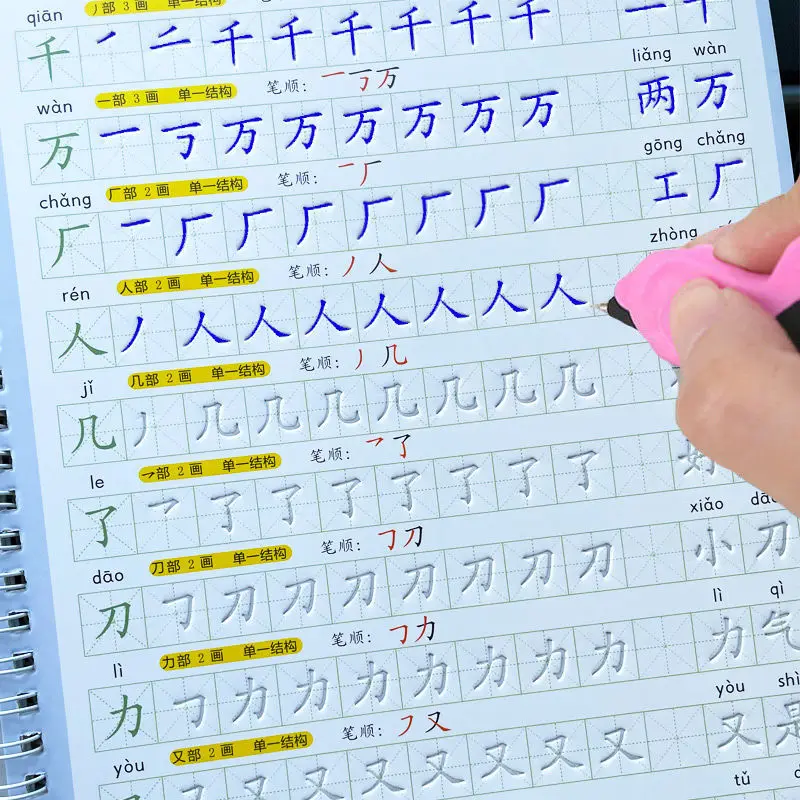 qiān 丿部 3 画 单一结构
千 丿 二 千 千 千 千 千 千 一 千
wàn 一部 3 画 单一结构 笔顺： 一 丆 万 liǎng wàn
万 一 丂 万 万 万 万 万 万 两 万
chǎng 厂部 2 画 单一结构 笔顺： 一 厂 gōng chǎng
厂 一 厂 厂 厂 厂 厂 厂 厂 工 厂
rén 人部 2 画 单一结构 笔顺： 丿 人 zhòng
人 丿 人 人 人 人 人 人 人
jǐ 几部 2 画 单一结构 笔顺： 丿 几
几 丿 几 几 几 几 几 几 几
le 乛部 2 画 单一结构 笔顺： 乛 了
了 乛 了 了 了 了 了 了 了 好
dāo 刀部 2 画 单一结构 笔顺： ㇆ 刀 xiǎo dāo
刀 ㇆ 刀 刀 刀 刀 刀 刀 刀 小 刀
lì 力部 2 画 单一结构 笔顺： ㇆ 力 lì qì
力 ㇆ 力 力 力 力 力 力 力 力 气
yòu 又部 2 画 单一结构 笔顺： ㇇ 又 yòu shì
又 又 又 又 又 又 又 又 是
tǔ